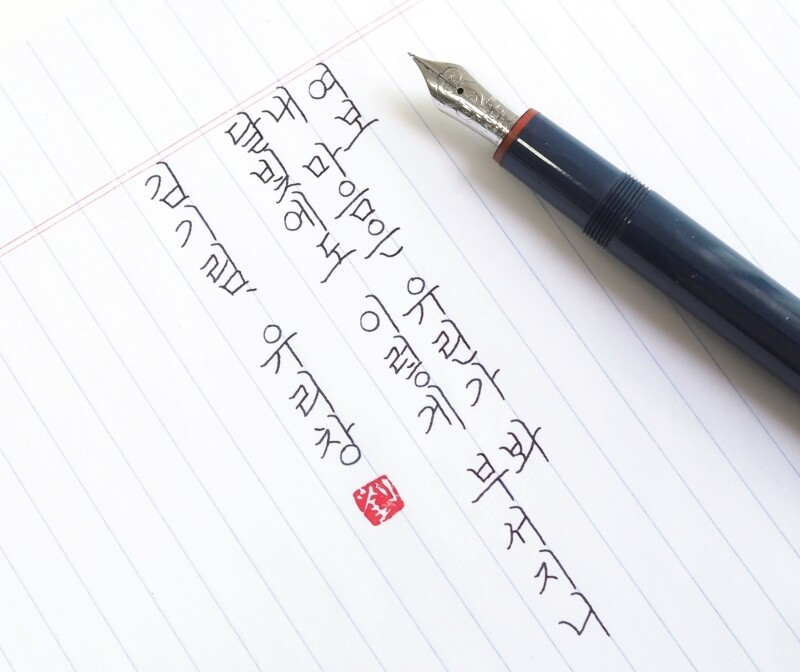 여보
내 마음은 유린가 봐
달빛에도 이렇게 부서지니
김기림, 유리창